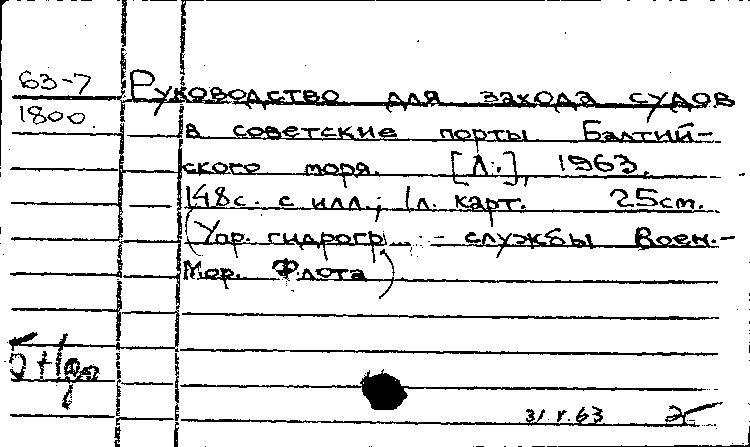 63-7 Руководство для захода судов
1800 в советские порты Балтий-
ского моря. [Л.], 1963.
148с. с илл.; 1л. карт. 25см.
(Упр. гидрогр... - службы Воен.-
Мор. Флота)
31.V.63